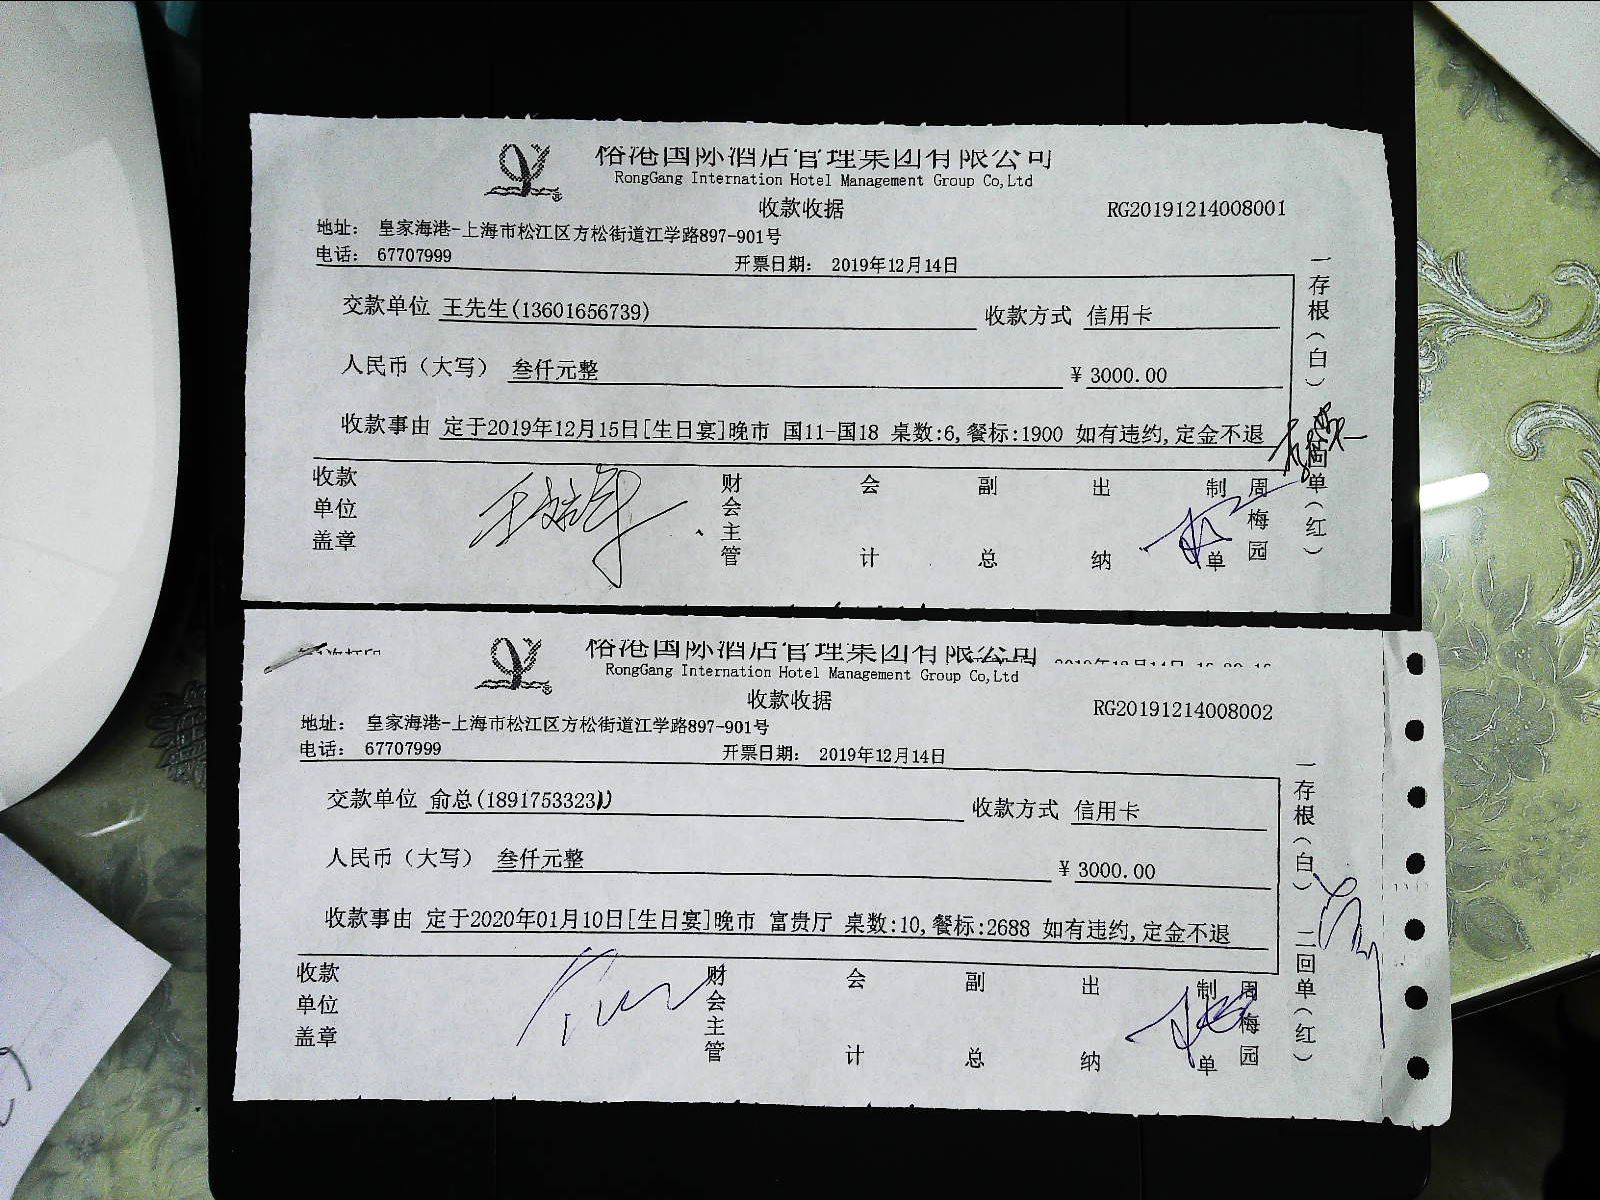 榕港国际酒店管理集团有限公司
RongGang Internation Hotel Management Group Co,Ltd
收款收据
RG20191214008001
地址： 皇家海港-上海市松江区方松街道江学路897-901号
电话： 67707999 开票日期： 2019年12月14日
交款单位 王先生(13601656739) 收款方式 信用卡
人民币（大写） 叁仟元整 ¥ 3000.00
收款事由 定于2019年12月15日[生日宴]晚市 国11-国18 桌数:6,餐标:1900 如有违约,定金不退
收款单位盖章 财会主管 会计 副总 出纳 制单 周梅园
一存根（白） 回单（红）
榕港国际酒店管理集团有限公司
RongGang Internation Hotel Management Group Co,Ltd
收款收据
RG20191214008002
地址： 皇家海港-上海市松江区方松街道江学路897-901号
电话： 67707999 开票日期： 2019年12月14日
交款单位 俞总(1891753323 ) 收款方式 信用卡
人民币（大写） 叁仟元整 ¥ 3000.00
收款事由 定于2020年01月10日[生日宴]晚市 富贵厅 桌数:10,餐标:2688 如有违约,定金不退
收款单位盖章 财会主管 会计 副总 出纳 制单 周梅园
一存根（白） 二回单（红）